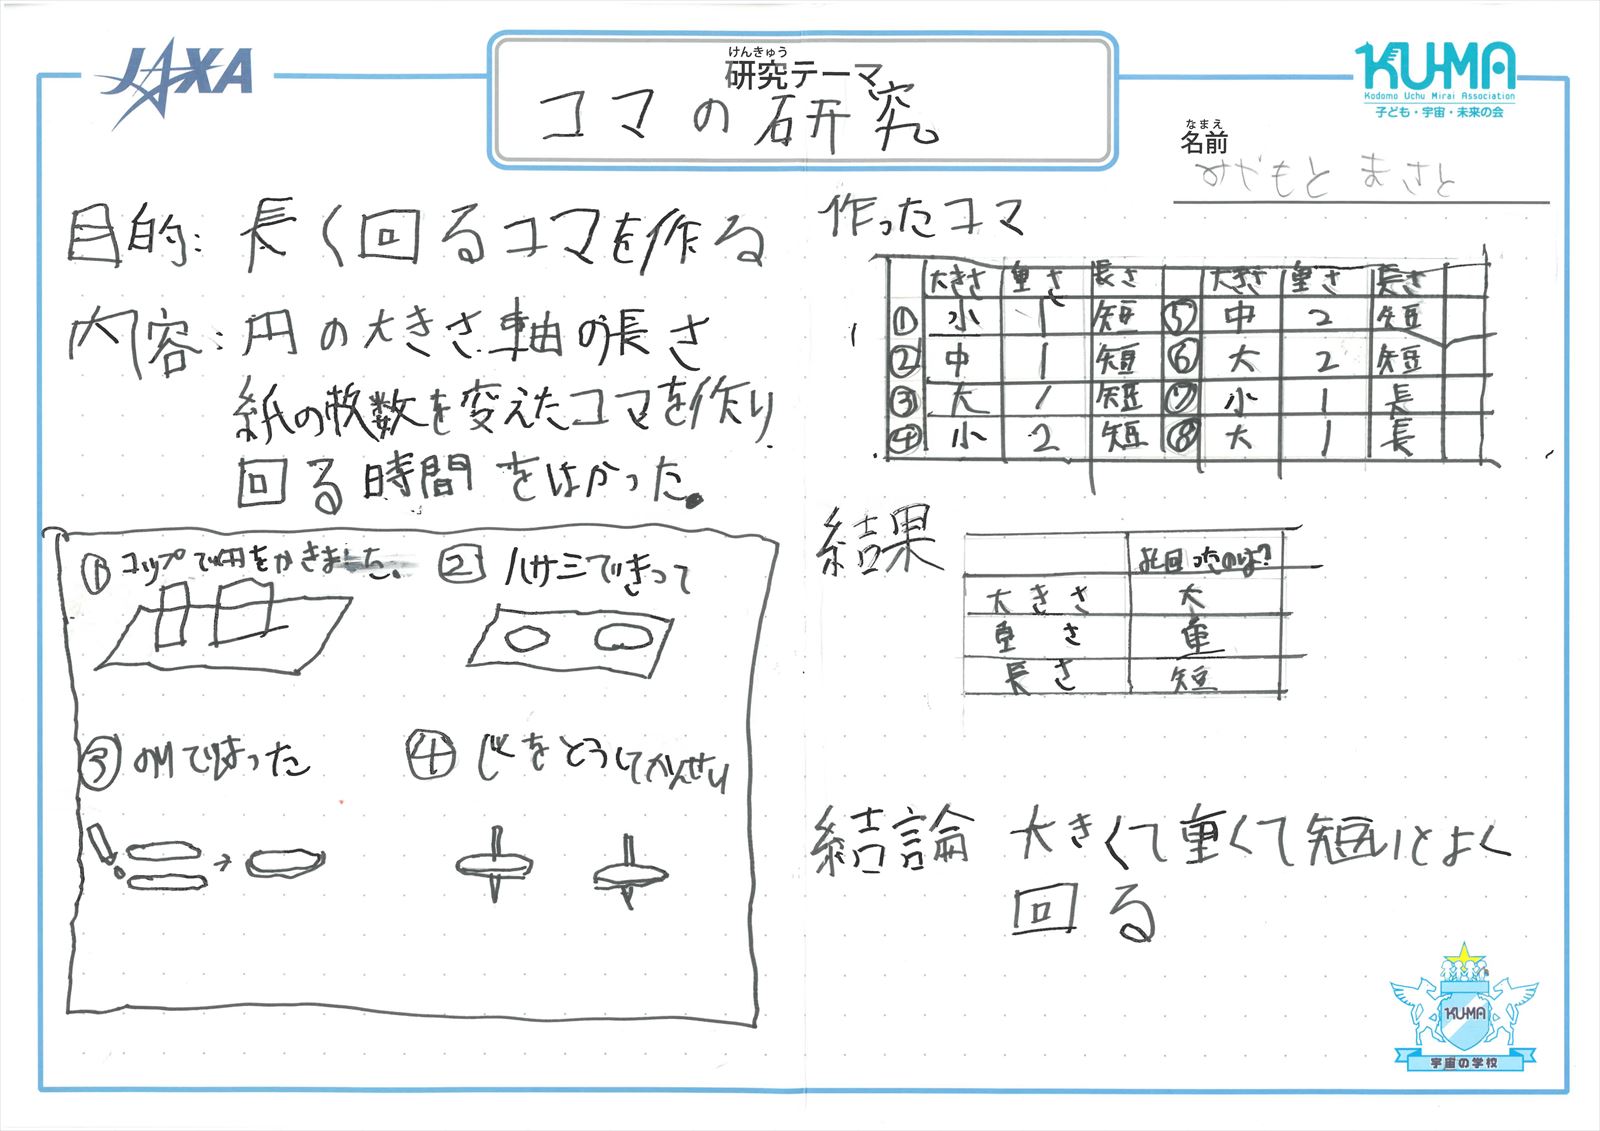 JAXA
けんきゅう
研究テーマ
コマの研究
KU-MA
Kodomo Uchu Mirai Association
子ども・宇宙・未来の会
なまえ
名前
みやもと まさと
目的: 長く回るコマを作る
内容: 円の大きさ 軸の長さ
紙の枚数を変えたコマを作り
回る時間をはかった。
① コップで円をかきました。
② ハサミできって
③ のりではった
④ じくをとうしてかんせい
作ったコマ
大きさ 重さ 長さ 大きさ 重さ 長さ
① 小 1 短 ⑤ 中 2 短
② 中 1 短 ⑥ 大 2 短
③ 大 1 短 ⑦ 小 1 長
④ 小 2 短 ⑧ 大 1 長
結果
よく回ったのは?
大きさ 大
重さ 重
長さ 短
結論 大きくて重くて短いとよく
回る
KU-MA
宇宙の学校